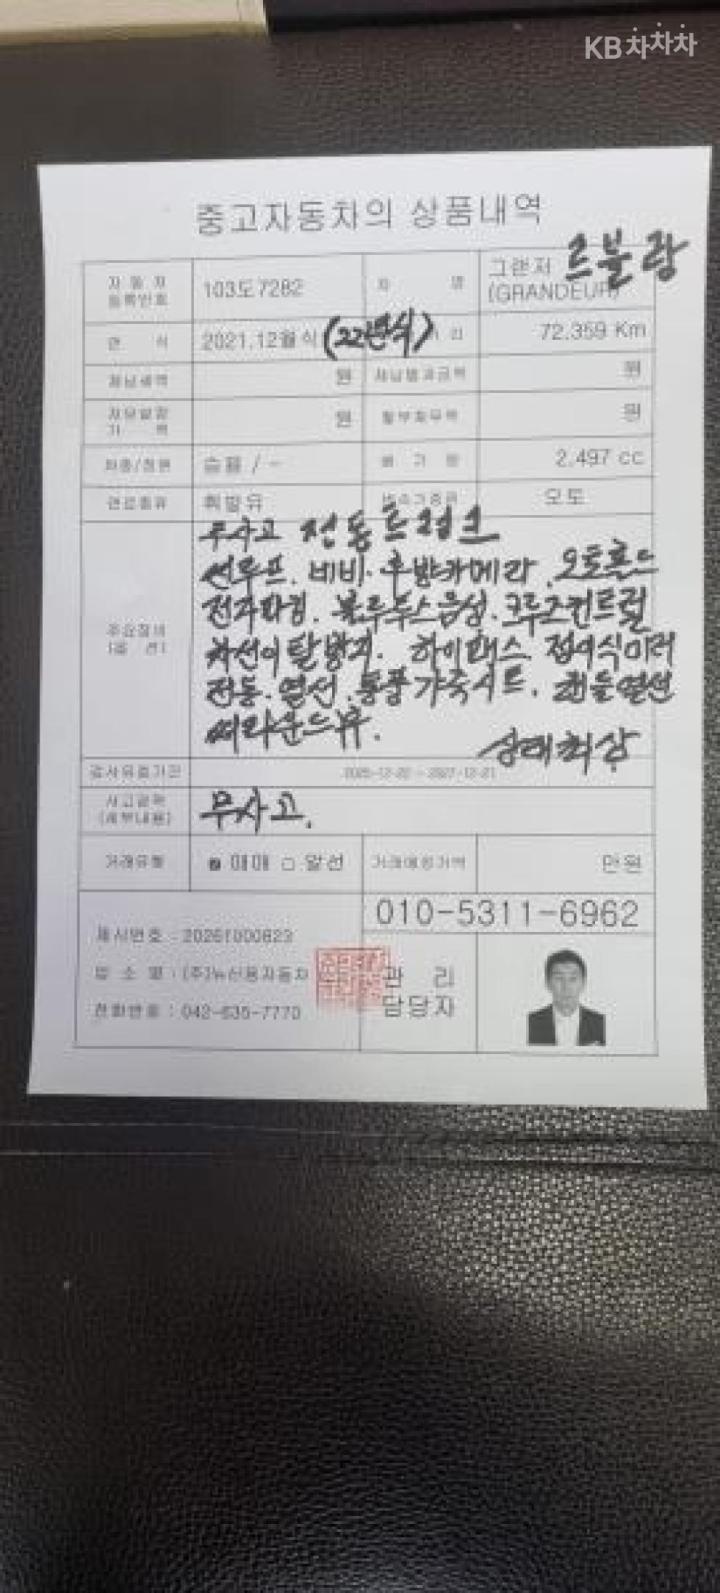 KB차차차
중고자동차의 상품내역
자동차 등록번호 103도7282 차 명 그랜저 (GRANDEUR) 르블랑
연 식 2021.12월식 (22년식) 72,359 Km
체납세액 원 체납범과금액 원
원 할부채무액 원
차종/정원 승용 / - 배 기 량 2,497 cc
연료종류 휘발유 변속기종류 오토
주요장비 (옵 션)
무사고 전동트렁크
썬루프. 네비. 후방카메라. 오토홀드
전자파킹. 블루투스음성. 크루즈컨트럴
차선이탈방지. 하이패스 접이식미러
전동. 열선. 통풍가죽시트. 핸들열선
써라운드뷰.
상태최상
검사유효기간 2025-12-22 ~ 2027-12-21
사고경력 (세부내용) 무사고.
거래유형 매매 알선 거래예정가액 만원
010-5311-6962
제시번호 : 20261000823
업 소 명 : (주)뉴신용자동차
전화번호 : 042-635-7770
관 리
담당자